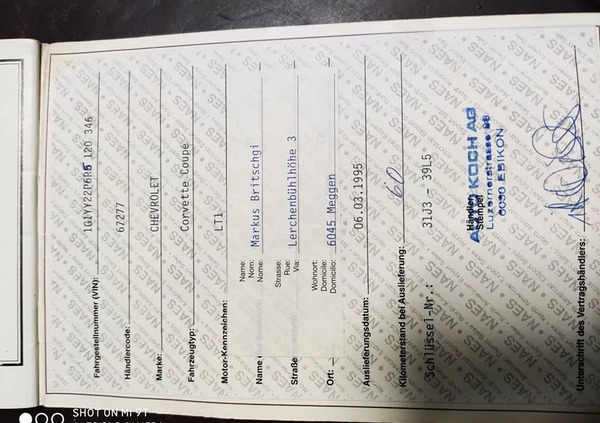 Fahrgestellnummer (VIN): 1G1YY22P6R5 120 346
Händlercode: 67277
Marke: CHEVROLET
Fahrzeugtyp: Corvette Coupé
Motor-Kennzeichen: LT1
Name Name: Nom: Nome: Markus Britschgi
Straße Strasse: Rue: Via: Lerchenbühlhöhe 3
Ort: Wohnort: Domicile: Domicilio: 6045 Meggen
Auslieferungsdatum: 06.03.1995
Kilometerstand bei Auslieferung: 60
Schlüssel-Nr.: 31J3 - 39L5
Händler-
Stempel
KOCH AG
Luzernerstrasse
6030 EBIKON
Unterschrift des Vertragshändlers:
NAES
SHOT ON MI 9T